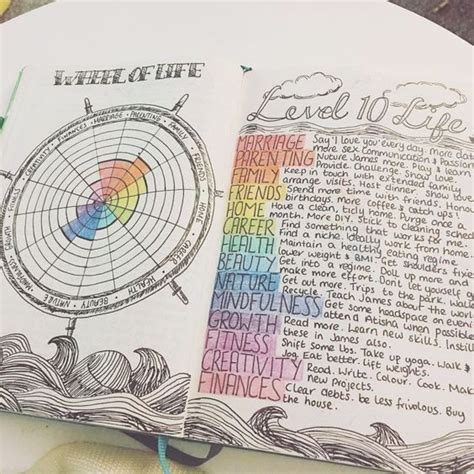 WHEEL OF LIFE
MARRIAGE • PARENTING • FAMILY • FRIENDS • HOME • CAREER • HEALTH • BEAUTY • NATURE • MINDFULNESS • GROWTH • FITNESS • CREATIVITY • FINANCES
Level 10 Life
MARRIAGE Say 'I love you' every day, more
more sex. Communication & Passion
PARENTING Provide Challenge. Show love.
Nature James more. Play &
FAMILY Keep in touch with extended family
arrange visits. Host dinner. Show love.
FRIENDS Spend more time with friends.
birthdays. more coffee & catch ups!
HOME Have a clean, tidy home. Purge once
month. More DIY. Stick to cleaning
CAREER Find something that works for me.
Find a niche. Ideally work from home
HEALTH Maintain a healthy eating regime
lower weight & BMI. Get shoulders
BEAUTY Get into a regime. Doll up more
make more efforts. Don't let yourself
NATURE Get out more. Trips to the park.
Recycle. Teach James about the
MINDFULNESS Get some headspace on every
attend Atisha when possible
GROWTH Read more. Learn new skills. Instill
these in James also.
FITNESS Shift some lbs. Take up yoga. Walk &
Jog. Eat better. Lift weights.
CREATIVITY Read. Write. Colour. Cook.
new Projects.
FINANCES Clear debts. be less frivolous. Buy
the house.